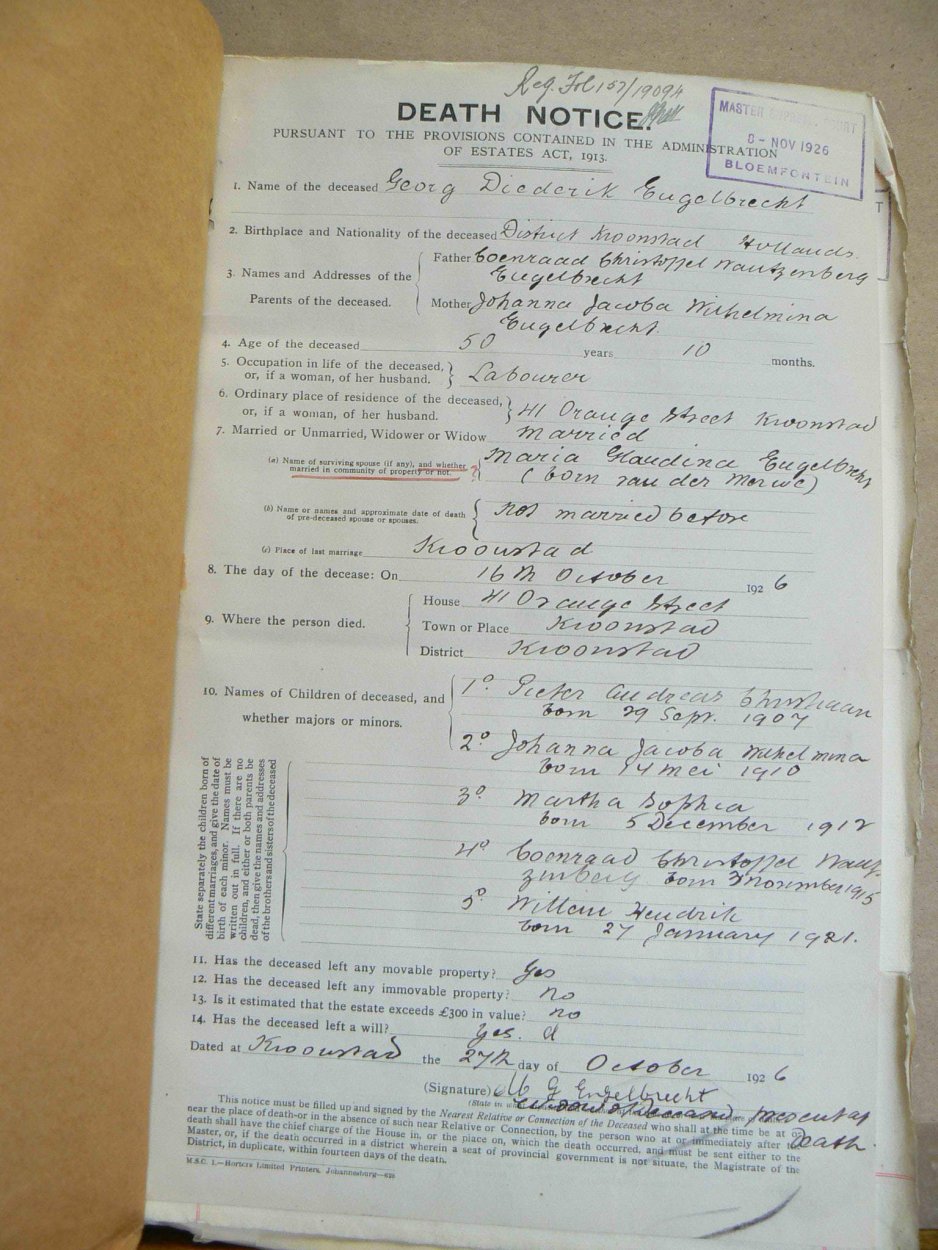 Reg. Fol 157/1909A
DEATH NOTICE.
MASTER SUPREME COURT
8 - NOV 1926
BLOEMFONTEIN
PURSUANT TO THE PROVISIONS CONTAINED IN THE ADMINISTRATION
OF ESTATES ACT, 1913.
1. Name of the deceased Georg Diederik Engelbrecht
2. Birthplace and Nationality of the deceased District Kroonstad Hollands.
3. Names and Addresses of the Parents of the deceased.
Father Coenraad Christoffel Nautzenberg
Engelbrecht
Mother Johanna Jacoba Wilhelmina
Engelbrecht
4. Age of the deceased 50 years 10 months.
5. Occupation in life of the deceased,
or, if a woman, of her husband. Labourer
6. Ordinary place of residence of the deceased,
or, if a woman, of her husband. 41 Orange Street Kroonstad
7. Married or Unmarried, Widower or Widow married
(a) Name of surviving spouse (if any), and whether
married in community of property or not. ? Maria Glaudina Engelbrecht
(born van der Merwe)
(b) Name or names and approximate date of death
of pre-deceased spouse or spouses. not married before
(c) Place of last marriage Kroonstad
8. The day of the decease: On 16th October 1926
9. Where the person died.
House 41 Orange Street
Town or Place Kroonstad
District Kroonstad
10. Names of Children of deceased, and
whether majors or minors.
1° Pieter Andreas Christiaan
born 29 Sept. 1907
2° Johanna Jacoba Wilhelmina
born 14 mei 1910
3° Martha Sophia
born 5 December 1912
4° Coenraad Christoffel Nautz
zinberg born 3 November 1915
5° Willem Hendrik
born 27 January 1921.
State separately the children born of
different marriages, and give the date of
birth of each minor. Names must be
written out in full. If there are no
children, and either or both parents be
dead, then give the names and addresses
of the brothers and sisters of the deceased
11. Has the deceased left any movable property? Yes
12. Has the deceased left any immovable property? no
13. Is it estimated that the estate exceeds £300 in value? no
14. Has the deceased left a will? Yes. d
Dated at Kroonstad the 27th day of October 1926
(Signature) M G Engelbrecht
(State in
Widow of Deceased present at
Death.
This notice must be filled up and signed by the Nearest Relative or Connection of the Deceased who shall at the time be at or
near the place of death—or in the absence of such near Relative or Connection, by the person who at or immediately after the
death shall have the chief charge of the House in, or the place on, which the death occurred, and must be sent either to the
Master, or, if the death occurred in a district wherein a seat of provincial government is not situate, the Magistrate of the
District, in duplicate, within fourteen days of the death.
M.S.C. 1.—Hortors Limited Printers, Johannesburg—